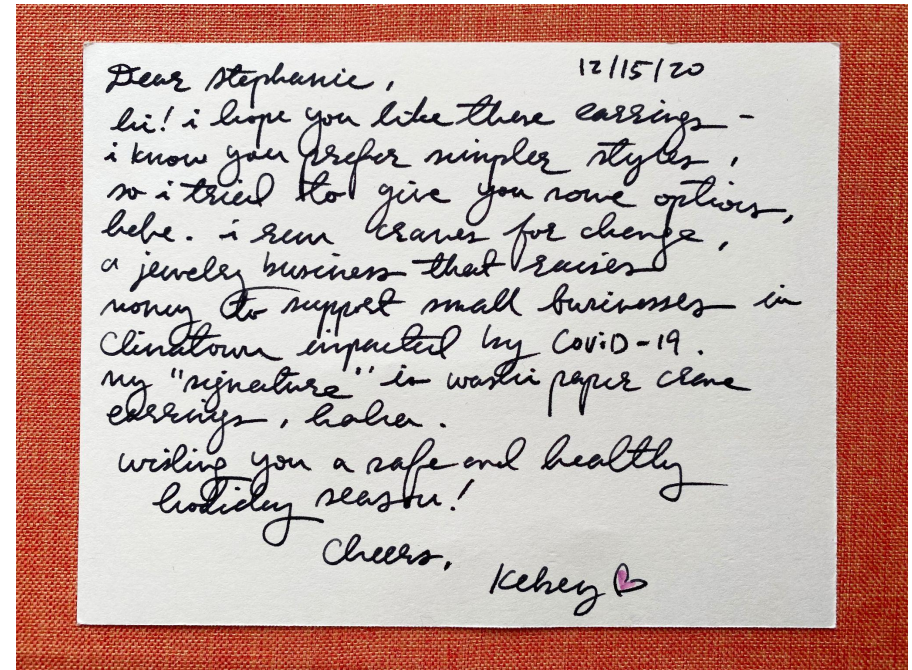 12/15/20
Dear Stephanie,
hi! i hope you like these earrings -
i know you prefer simpler styles,
so i tried to give you some options,
hehe. i run cranes for change,
a jewelry business that raises
money to support small businesses in
Chinatown impacted by COViD-19.
my "signature" is washi paper crane
earrings, haha.
wishing you a safe and healthy
holiday season!
Cheers,
Kelsey